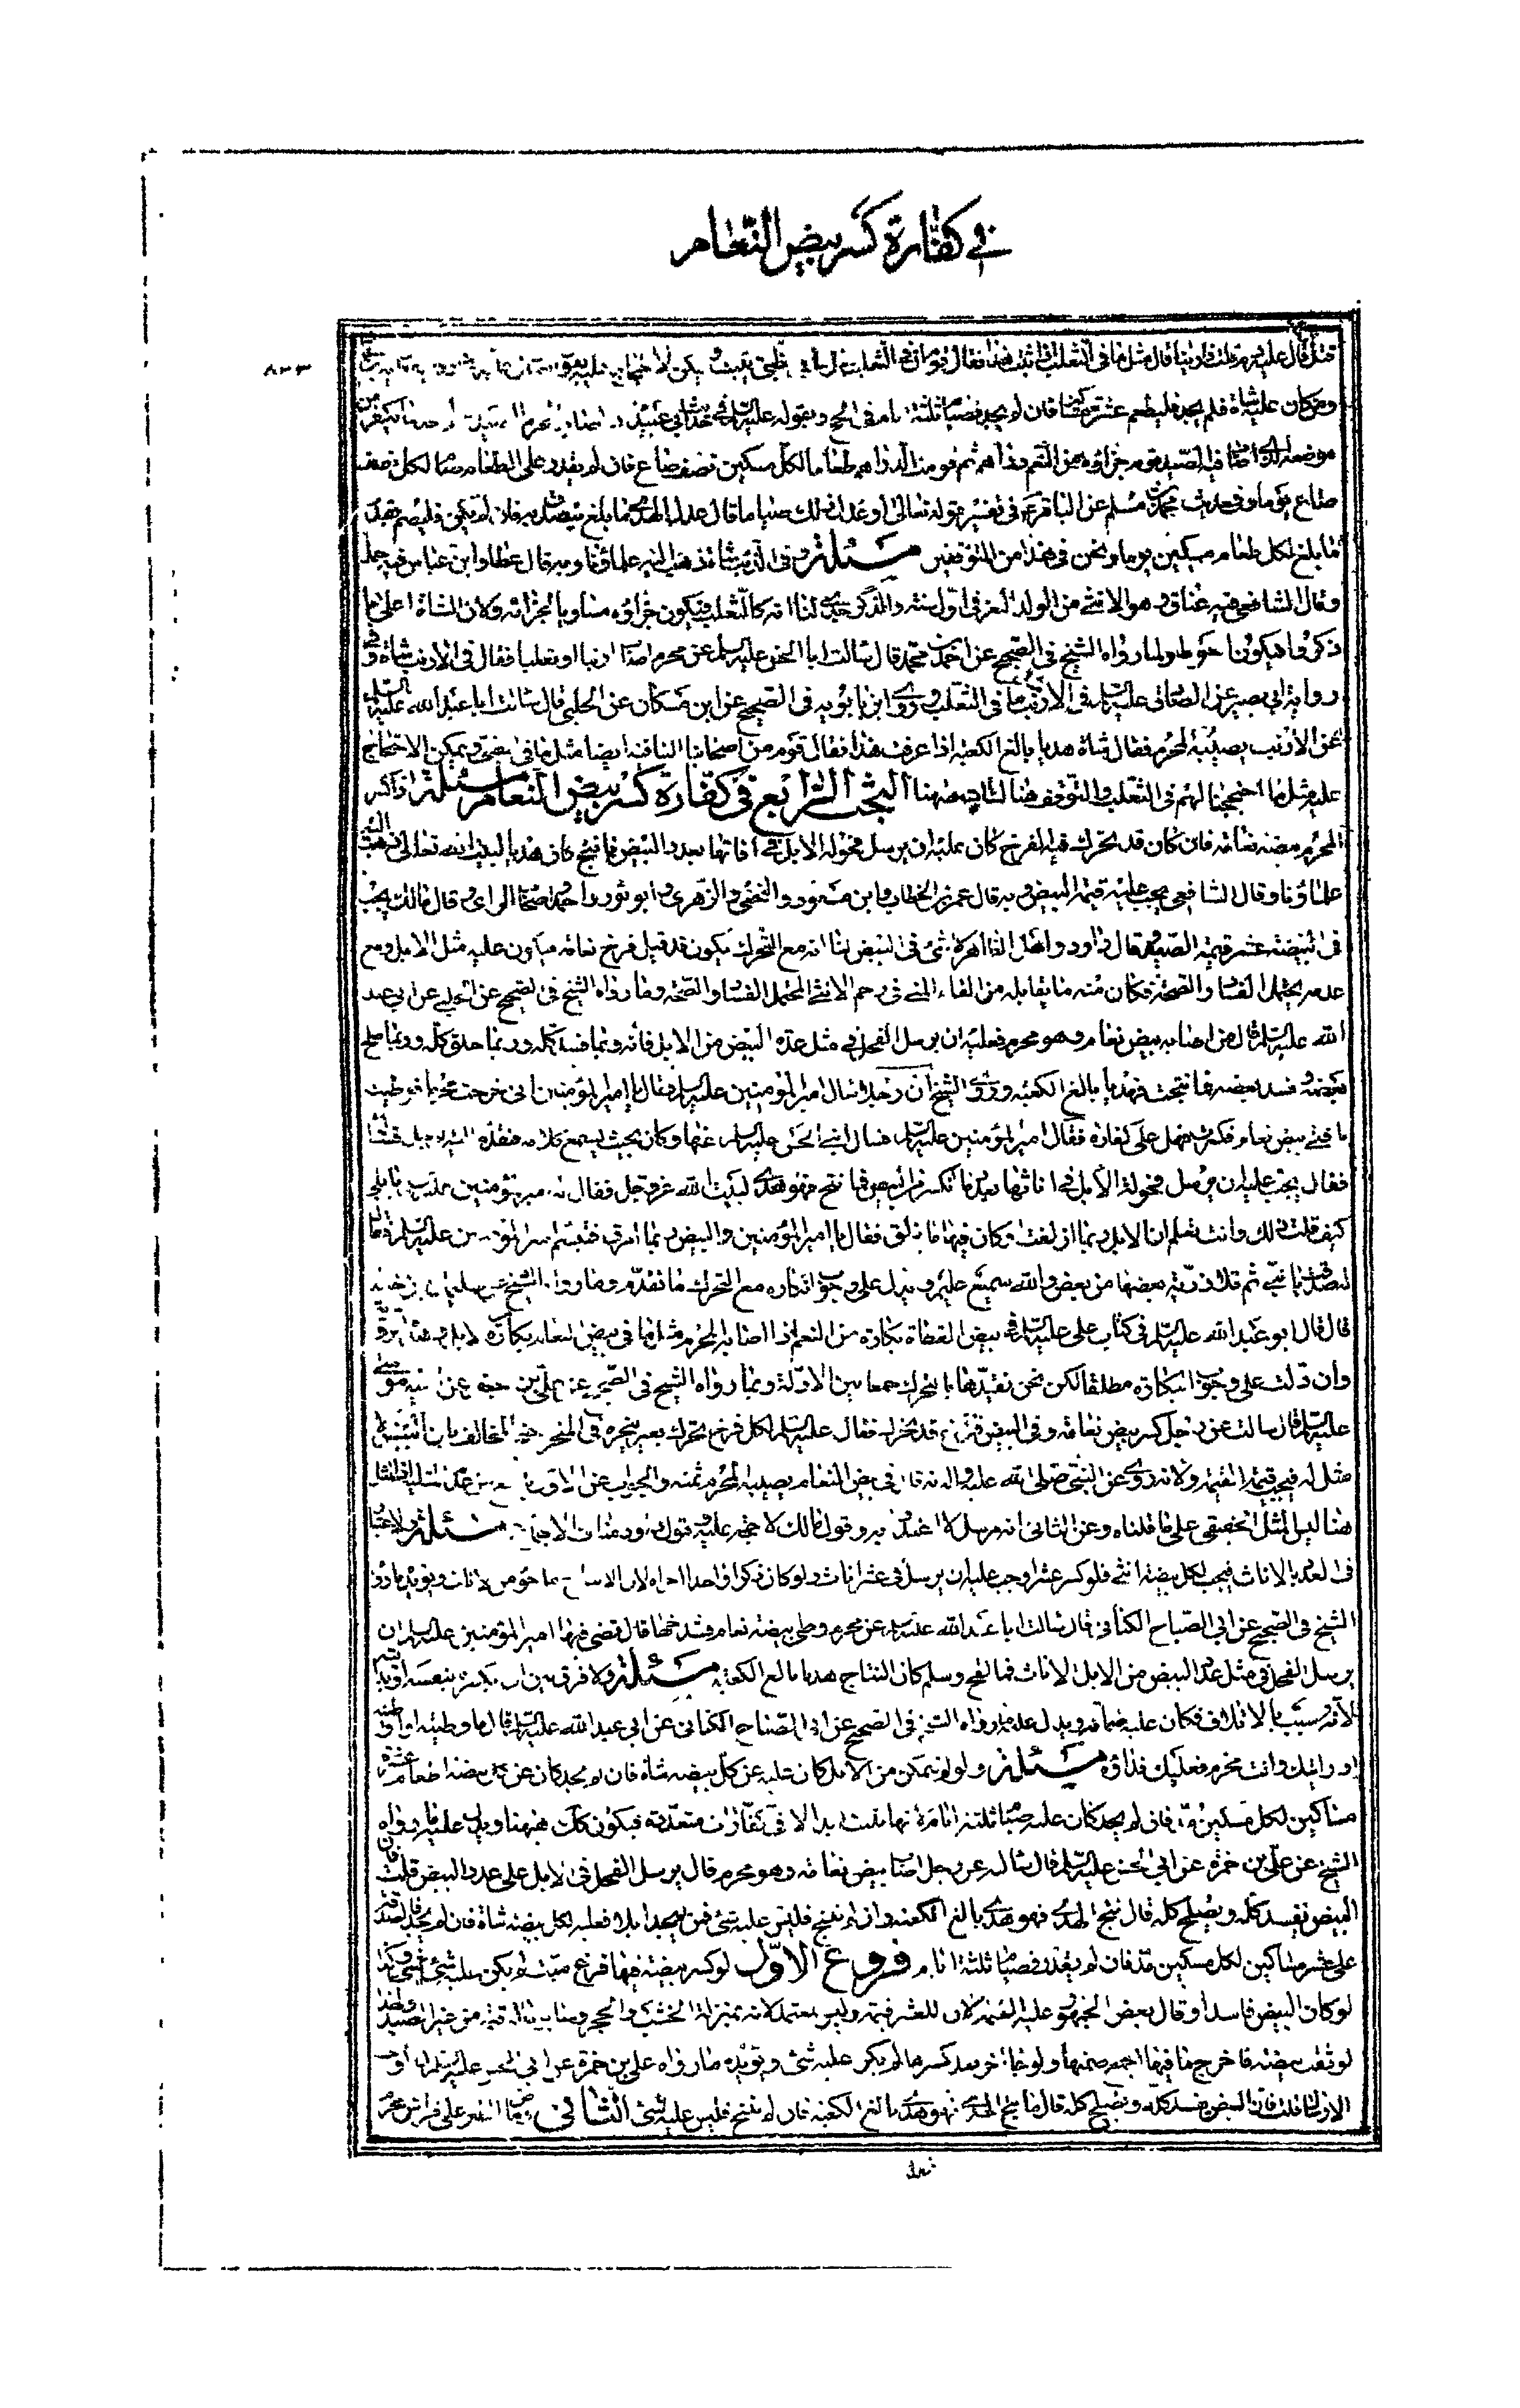 في كفارة كسر بيض النعام
٨٢٣
قتل قال عليه دم قلت فارنبا قال مثل ما في الثعلب اذا ثبت هذا فقال قوم ان في الثعلب
ومن كان عليه شاة فلم يجد فليطعم عشرة مساكين فان لم يجد فصيام ثلثة ايام في الحج وبقوله عليه السلم في حديث ابي عبيدة اذا اصاب المحرم الصيد ولم يجد ما يكفر من
موضعه الذي اصاب فيه الصيد قوم جزاؤه من النعم دراهم ثم قومت الدراهم طعاما لكل مسكين نصف صاع فان لم يقدر على الطعام صام لكل نصف
صاع يوما وفي حديث محمد بن مسلم عن الباقر ع في تفسير قوله تعالى او عدل ذلك صياما قال عدل الهدي ما بلغ يتصدق به فان لم يكن فليصم بقدر
ما بلغ لكل طعام مسكين يوما ونحن في هذا من المتوقفين مسئلة وفي الارنب شاة ذهب اليه علماؤنا وبه قال عطا وابن عباس فيه حمل
وقال الشافعي فيه عناق وهو الانثى من ولد المعز في اول سنة والذكر جدي لنا انه كالثعلب فيكون جزاؤه مساويا لجزائه ولان الشاة اعلى ما
ذكروه فيكون احوط ولما رواه الشيخ في الصحيح عن احمد بن محمد قال سالت ابا الحسن عليه السلم عن محرم اصاب ارنبا او ثعلبا فقال في الارنب شاة وفي
رواية ابي بصير عن الصادق عليه السلم في الارنب ما في الثعلب وروى ابن بابويه في الصحيح عن ابن مسكان عن الحلبي قال سالت ابا عبد الله عليه السلم
عن الارنب يصيبه المحرم فقال شاة هديا بالغ الكعبة اذا عرفت هذا فقال قوم من اصحابنا ان فيه ايضا مثل ما في الظبي ويمكن الاحتجاج
عليه بمثل ما احتججنا لهم في الثعلب والتوقف هنا كما هو هنا البحث الرابع في كفارة كسر بيض النعام مسئلة اذا كسر
المحرم بيضة نعامة فان كان قد تحرك فيه الفرخ كان عليه ان يرسل فحولة الابل في اناثها بعدد البيض فما نتج كان هديا لبيت الله تعالى ذهب اليه
علماؤنا وقال الشافعي يجب عليه قيمة البيض وبه قال عمر بن الخطاب وابن مسعود والنخعي والزهري وابو ثور واحمد واصحاب الراي وقال مالك يجب
في البيضة عشر قيمة الصيد وقال داود واهل الظاهر لا شئ في البيض لنا انه مع التحرك يكون قد قتل فرخ نعامة فيكون عليه مثل الابل ومع
عدمه يحتمل الفساد والصحة فكان منه ما يقابله من القاء المني في رحم الانثى المحتمل الفساد والصحة وما رواه الشيخ في الصحيح عن الحلبي عن ابي عبد
الله عليه السلم قال من اصاب بيض نعام وهو محرم فعليه ان يرسل الفحل في مثل عدة البيض من الابل فانه ربما فسد كله وربما خلق كله وربما صلح
بعضه وفسد بعضه فما نتجت فهديا بالغ الكعبة وروى الشيخ ان رجلا سال امير المؤمنين عليه السلم فقال يا امير المؤمنين اني خرجت محرما فوطئت
ناقتي بيض نعام فكسرته فهل علي كفارة فقال امير المؤمنين عليه السلم فسال ابني الحسن عليه السلم عنها وكان بحيث يسمع كلامه فتقدم اليه الرجل فساله
فقال يجب عليك ان ترسل فحولة الابل في اناثها بعدد ما انكسر من البيض فما نتج فهو هدي لبيت الله عز وجل فقال له امير المؤمنين عليه السلم يا بني
كيف قلت ذلك وانت تعلم ان الابل ربما ازلقت وكان فيها ما يزلق فقال يا امير المؤمنين والبيض ربما امرق فتبسم امير المؤمنين عليه السلم وقال
صدقت يا بني ثم تلا ذرية بعضها من بعض والله سميع عليم ويدل على وجوب البكارة مع التحرك ما تقدم وما رواه الشيخ عن سليمان بن خالد
قال قال ابو عبد الله عليه السلم في كتاب علي عليه السلم في بيض القطاة بكارة من الغنم اذا اصابه المحرم مثل ما في بيض النعام بكارة من الابل وهذه الرواية
وان دلت على وجوب البكارة مطلقا لكن نحن نقيدها بالتحرك جمعا بين الادلة وبما رواه الشيخ في الصحيح عن علي بن جعفر عن اخيه موسى
عليه السلم قال سالت عن رجل كسر بيض نعامة وفي البيض فراخ قد تحرك فقال عليه السلم لكل فرخ تحرك بعير ينحره في المنحر احتج المخالف بان البيض لا
مثل له فيجب قيمة القيمة ولانه روي عن النبي صلى الله عليه واله انه قال في بيض النعام يصيبه المحرم ثمنه والجواب عن الاول
هنا ليس المثل الحقيقي على ما قلناه وعن الثاني انه مرسل لا اعتداد به وقول مالك لا حجة عليه وقول داود مناف الاجماع مسئلة والاعتبار
في العدد بالاناث فيجب لكل بيضة انثى فلو كسر عشرا وجب عليه ان يرسل في عشر اناث ولو كان ذكرا واحدا اجزاه لان الانتاج ماخوذ من الاناث ويؤيده ما رواه
الشيخ في الصحيح عن ابي الصباح الكناني قال سالت ابا عبد الله عليه السلم عن محرم وطئ بيضة نعام فشدخها قال قضى فيها امير المؤمنين عليه السلم ان
يرسل الفحل في مثل عدد البيض من الابل الاناث فما لقح وسلم كان النتاج هديا بالغ الكعبة مسئلة ولا فرق بين ان يكسره بنفسه او بدابته
لانه سبب بالاتلاف فكان عليه ضمانه ويدل عليه ما رواه الشيخ في الصحيح عن ابي الصباح الكناني عن ابي عبد الله عليه السلم قال ما وطئته او وطئه بعيرك
او دابتك وانت محرم فعليك فداؤه مسئلة ولو لم يتمكن من الابل كان عليه عن كل بيضة شاة فان لم يجد كان عن كل بيضة اطعام عشرة
مساكين لكل مسكين مد فان لم يجد كان عليه صيام ثلثة ايام
الشيخ عن علي بن ابي حمزة عن ابي الحسن عليه السلم قال سالته عن رجل اصاب بيض نعامة وهو محرم قال يرسل الفحل في الابل على عدد البيض قلت فان
البيض يفسد كله ويصلح كله قال ما ينتج الهدي فهو هدي بالغ الكعبة وان لم ينتج فليس عليه شئ فمن لم يجد ابلا فعليه لكل بيضة شاة فان لم يجد فالصدقة
على عشرة مساكين لكل مسكين مد فان لم يقدر فصيام ثلثة ايام فروع الاول لو كسر بيضة فيها فرخ ميت لم يكن عليه شئ وكذا
لو كان البيض فاسدا وقال بعض الجمهور عليه القيمة لان للقشر قيمة وليس بمعتمد لانه بمنزلة الخشب والحجر
لو ثقب بيضة فاخرج ما فيها اجمع ضمنها ولو غاب اخر بعد كسرها لم يكن عليه شئ ويؤيده ما رواه علي بن ابي حمزة عن ابي الحسن عليه السلم
الارسال قلت فان البيض يفسد كله ويصلح كله قال ما ينتج الهدي فهو هدي بالغ الكعبة فان لم ينتج فليس عليه شئ الثاني